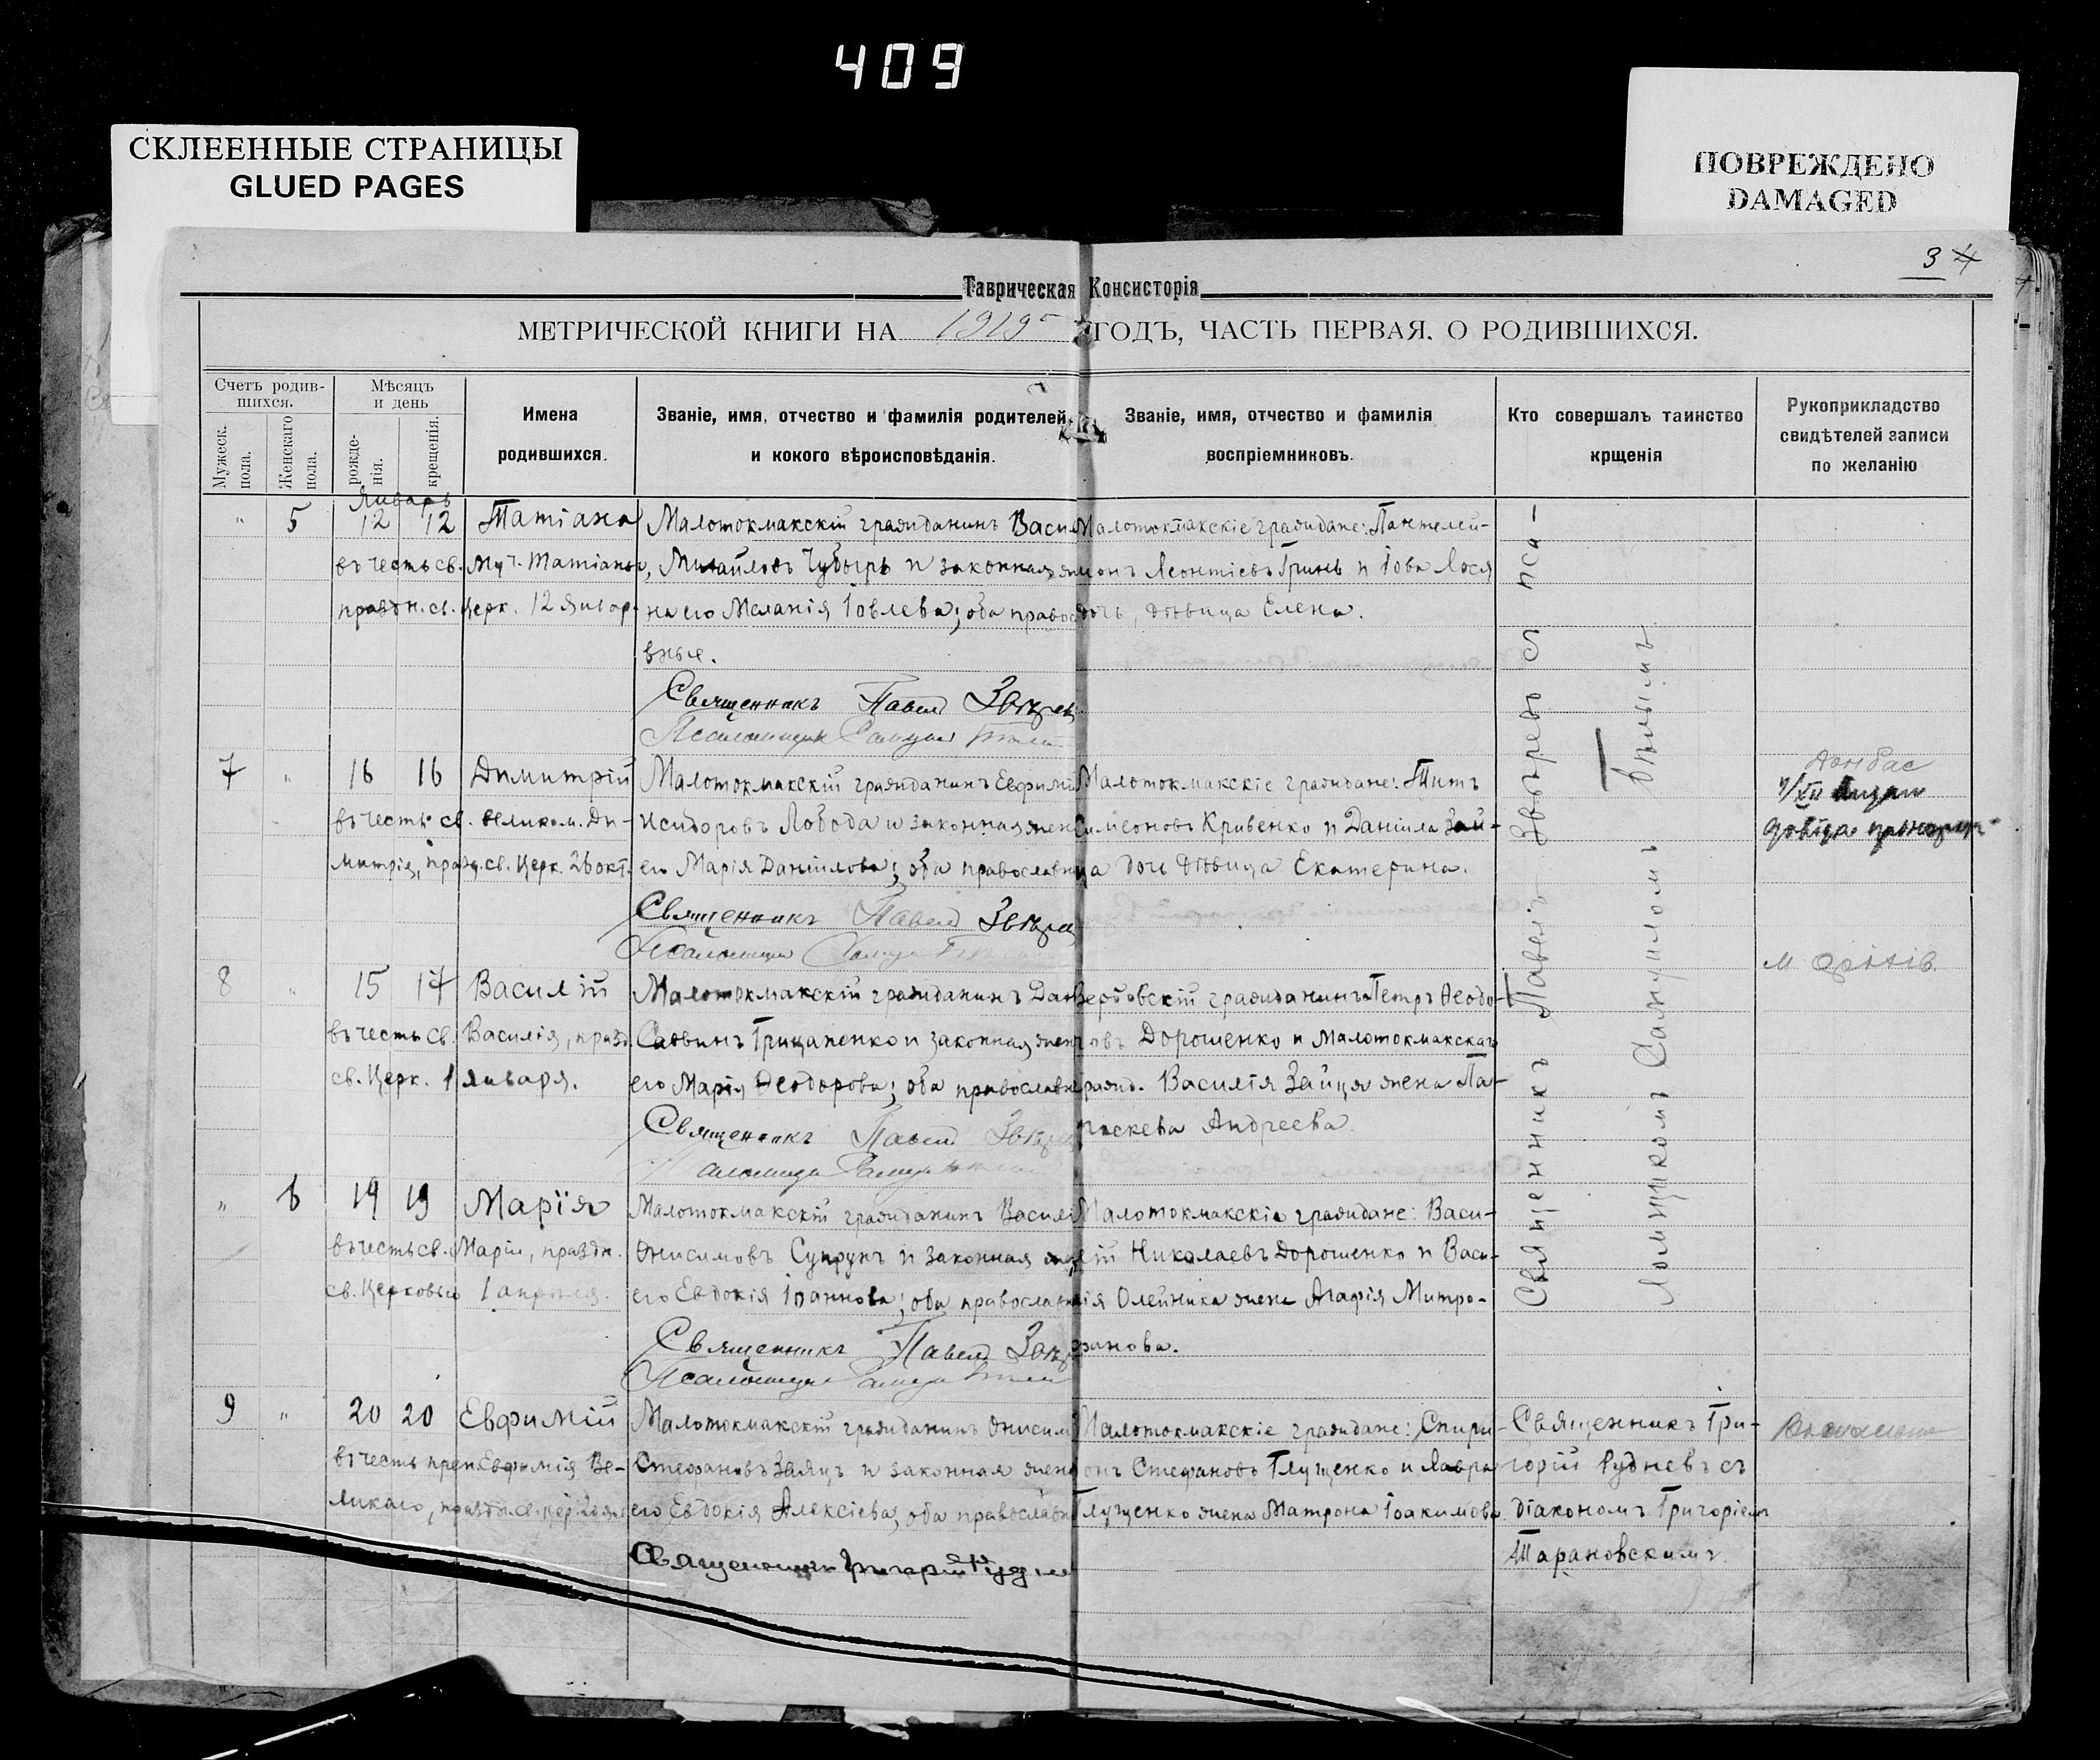 409
СКЛЕЕННЫЕ СТРАНИЦЫ
GLUED PAGES
ПОВРЕЖДЕНО
DAMAGED
3 4
Таврическая Консисторія
МЕТРИЧЕСКОЙ КНИГИ НА 1919 ГОДЪ, ЧАСТЬ ПЕРВАЯ, О РОДИВШИХСЯ.
Счетъ родив-
шихся.
Мужеск.
пола.
Женскаго
пола.
Мѣсяцъ
и день
рожде-
нія.
крещенія.
Имена
родившихся.
Званіе, имя, отчество и фамилія родителей,
и кокого вѣроисповѣданія.
Званіе, имя, отчество и фамилія
воспріемниковъ.
Кто совершалъ таинство
крщенія
Рукоприкладство
свидѣтелей записи
по желанію
Январь
" 5 12 12 Татіана
въ честь св. муч. Татіаны,
праздн. св. Церк. 12 Январ.
Малотокмакскій гражданинъ Васи
Михайловъ Чубырь и законная же
на его Меланія Іовлева; оба правос
вные.
Священникъ Павел Звѣрев
Малотокмакскіе граждане: Пантелей-
монъ Леонтіевъ Гринь и Іова Лося
дочь, дѣвица Елена.
7 " 16 16 Димитрій
въ честь св. великом. Ди-
митрія, празд. св. Церк. 26 окт.
Малотокмакскій гражданинъ Евфимій
Исидоровъ Лобода и законная жен
его Марія Даніилова; оба православн
Священникъ Павел Звѣрев
Малотокмакскіе граждане: Титъ
Симеоновъ Кривенко и Даніила Зай-
ца дочь дѣвица Екатерина.
Донбас
8 " 15 17 Василій
въ честь св. Василія, празд.
св. Церк. 1 Января.
Малотокмакскій гражданинъ Дан
Саввинъ Грицаненко и законная жен
его Марія Ѳеодорова; оба православн
Священникъ Павел Звѣрев
Вербовскій гражданинъ Петръ Ѳеодо-
ровъ Дорошенко и Малотокмакскаго
гражд. Василія Зайца жена Па-
раскева Андреева.
" 6 19 19 Марія
въ честь св. Маріи, праздн.
св. Церковью 1 апрѣля.
Малотокмакскій гражданинъ Василі
Онисимовъ Супрунъ и законная жена
его Евдокія Іоаннова; оба православн
Священникъ Павел Звѣр
Малотокмакскіе граждане: Васи-
лій Николаевъ Дорошенко и Васи-
лія Олейника жена Агафія Митро-
фанова.
Священникъ Павелъ Звѣревъ съ пса-
ломщикомъ Самуиломъ
9 " 20 20 Евфимій
въ честь преп. Евфимія Ве-
ликаго, праздн. св. Цер. 20 янв.
Малотокмакскій гражданинъ Онисим
Стефановъ Заяцъ и законная жена
его Евдокія Алексіева; оба православн
Священникъ Григорій Руднев
Малотокмакскіе граждане: Спири-
донъ Стефановъ Глущенко и Лавра
Глущенко жена Матрона Іоакимова
Священникъ Гри-
горій Рудневъ съ
діакономъ Григоріемъ
Тарановскимъ.